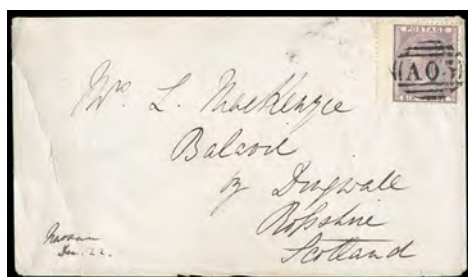 POSTAGE
A O
SIX
Mrs. L. MacKenzie
Balavil
by Dingwall
Rossshire
Scotland
Nassau
Jan. 22.